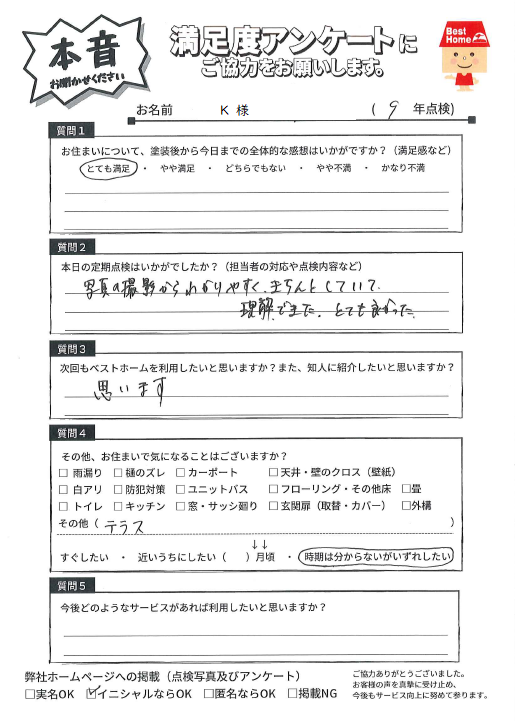 本音
お聞かせください
満足度アンケートに
ご協力をお願いします。
Best
Home
お名前 K 様 ( 9 年点検)
質問1
お住まいについて、塗装後から今日までの全体的な感想はいかがですか?(満足感など)
とても満足 ・ やや満足 ・ どちらでもない ・ やや不満 ・ かなり不満
質問2
本日の定期点検はいかがでしたか?(担当者の対応や点検内容など)
写真の撮影からわかりやすく、きちんとしていて、
理解できた。とても良かった。
質問3
次回もベストホームを利用したいと思いますか?また、知人に紹介したいと思いますか?
思います
質問4
その他、お住まいで気になることはございますか?
□ 雨漏り □ 樋のズレ □ カーポート □ 天井・壁のクロス(壁紙)
□ 白アリ □ 防犯対策 □ ユニットバス □ フローリング・その他床 □畳
□ トイレ □ キッチン □ 窓・サッシ廻り □ 玄関扉(取替・カバー) □外構
その他 ( テラス )
↓↓
すぐしたい ・ 近いうちにしたい ( ) 月頃 ・ 時期は分からないがいずれしたい
質問5
今後どのようなサービスがあれば利用したいと思いますか?
弊社ホームページへの掲載(点検写真及びアンケート)
□実名OK ☑イニシャルならOK □匿名ならOK □掲載NG
ご協力ありがとうございました。
お客様の声を真摯に受け止め、
今後もサービス向上に努めて参ります。